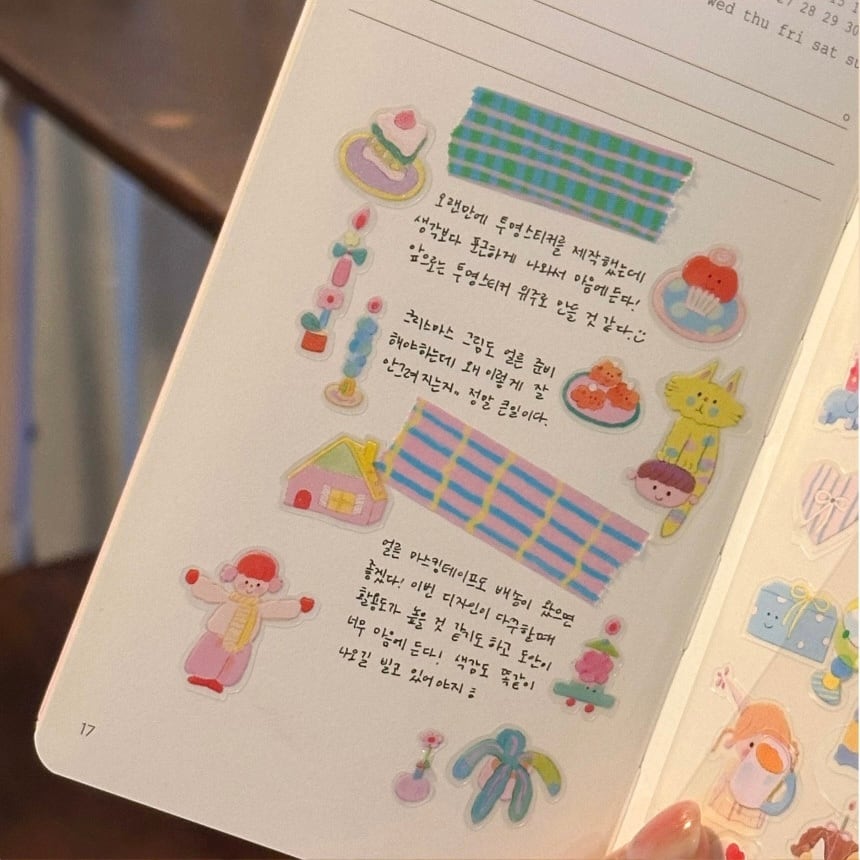 15 1
27 28 29 30
wed thu fri sat su
오랜만에 투명스티커를 제작했는데
생각보다 포근하게 나와서 마음에든다!
앞으로는 투명스티커 위주로 만들 것 같다.
크리스마스 그림도 얼른 준비
해야하는데 왜 이렇게 잘
안그려 지는지.. 정말 큰일이다.
얼른 마스킹테이프도 배송이 왔으면
좋겠다! 이번 디자인이 다꾸할때
활용도가 높을 것 같기도 하고 도안이
너무 마음에 든다! 색감도 똑같이
나오길 빌고 있어야지
17